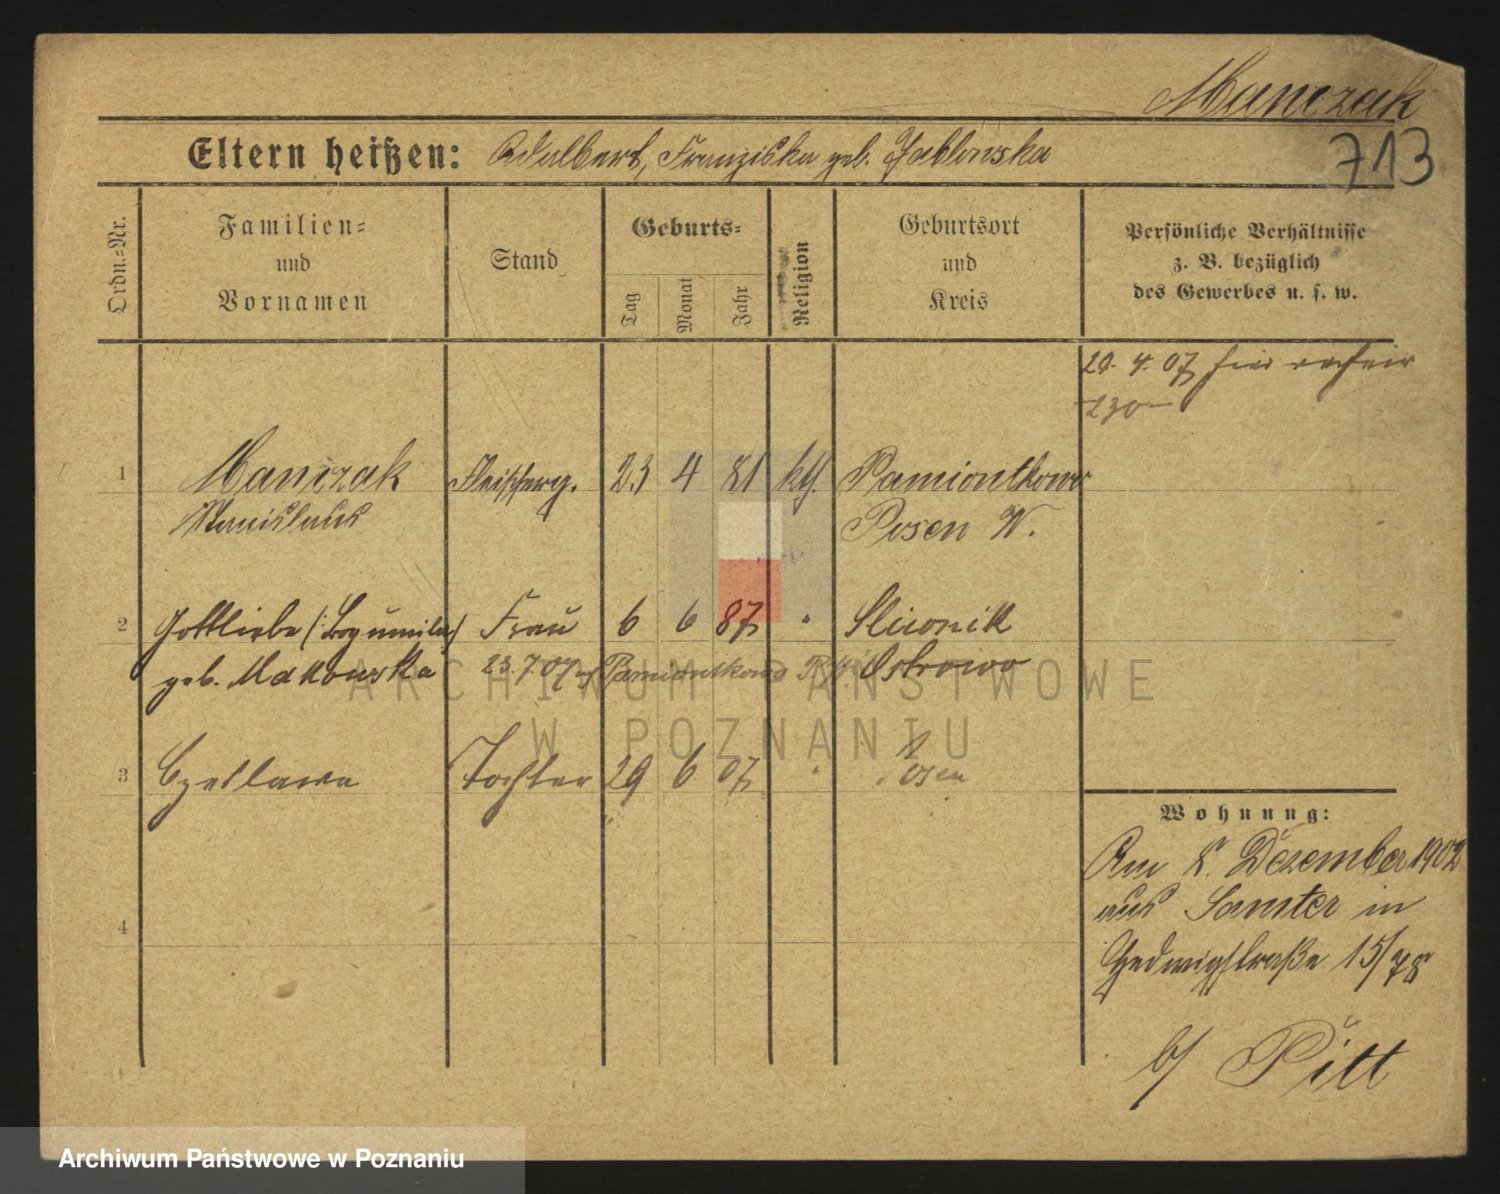 Manczak
713
Eltern heißen: Adalbert, Franziska geb. Jablonska
Ordn.=Nr.
Familien=
und
Vornamen
Stand
Geburts=
Tag
Monat
Jahr
Religion
Geburtsort
und
Kreis
Persönliche Verhältnisse
z. B. bezüglich
des Gewerbes u. s. w.
20. 4. 07
230
1 Manczak Fleischerg. 23 4 81 kth. Pamiontkowo
Stanislaus Posen W.
2 Gottliebe (: Bogumila) Frau 6 6 87 " Sliwnik
geb. Makowska 23.7.07 Pamiontkowo Ostrowo
3 Czeslawa Tochter 29 6 07 " Posen
4
Wohnung:
Am 8. Dezember 1902
aus Samter in
Hedwigstraße 15/
b/ Pitt
ARCHIWUM PAŃSTWOWE
W POZNANIU
Archiwum Państwowe w Poznaniu